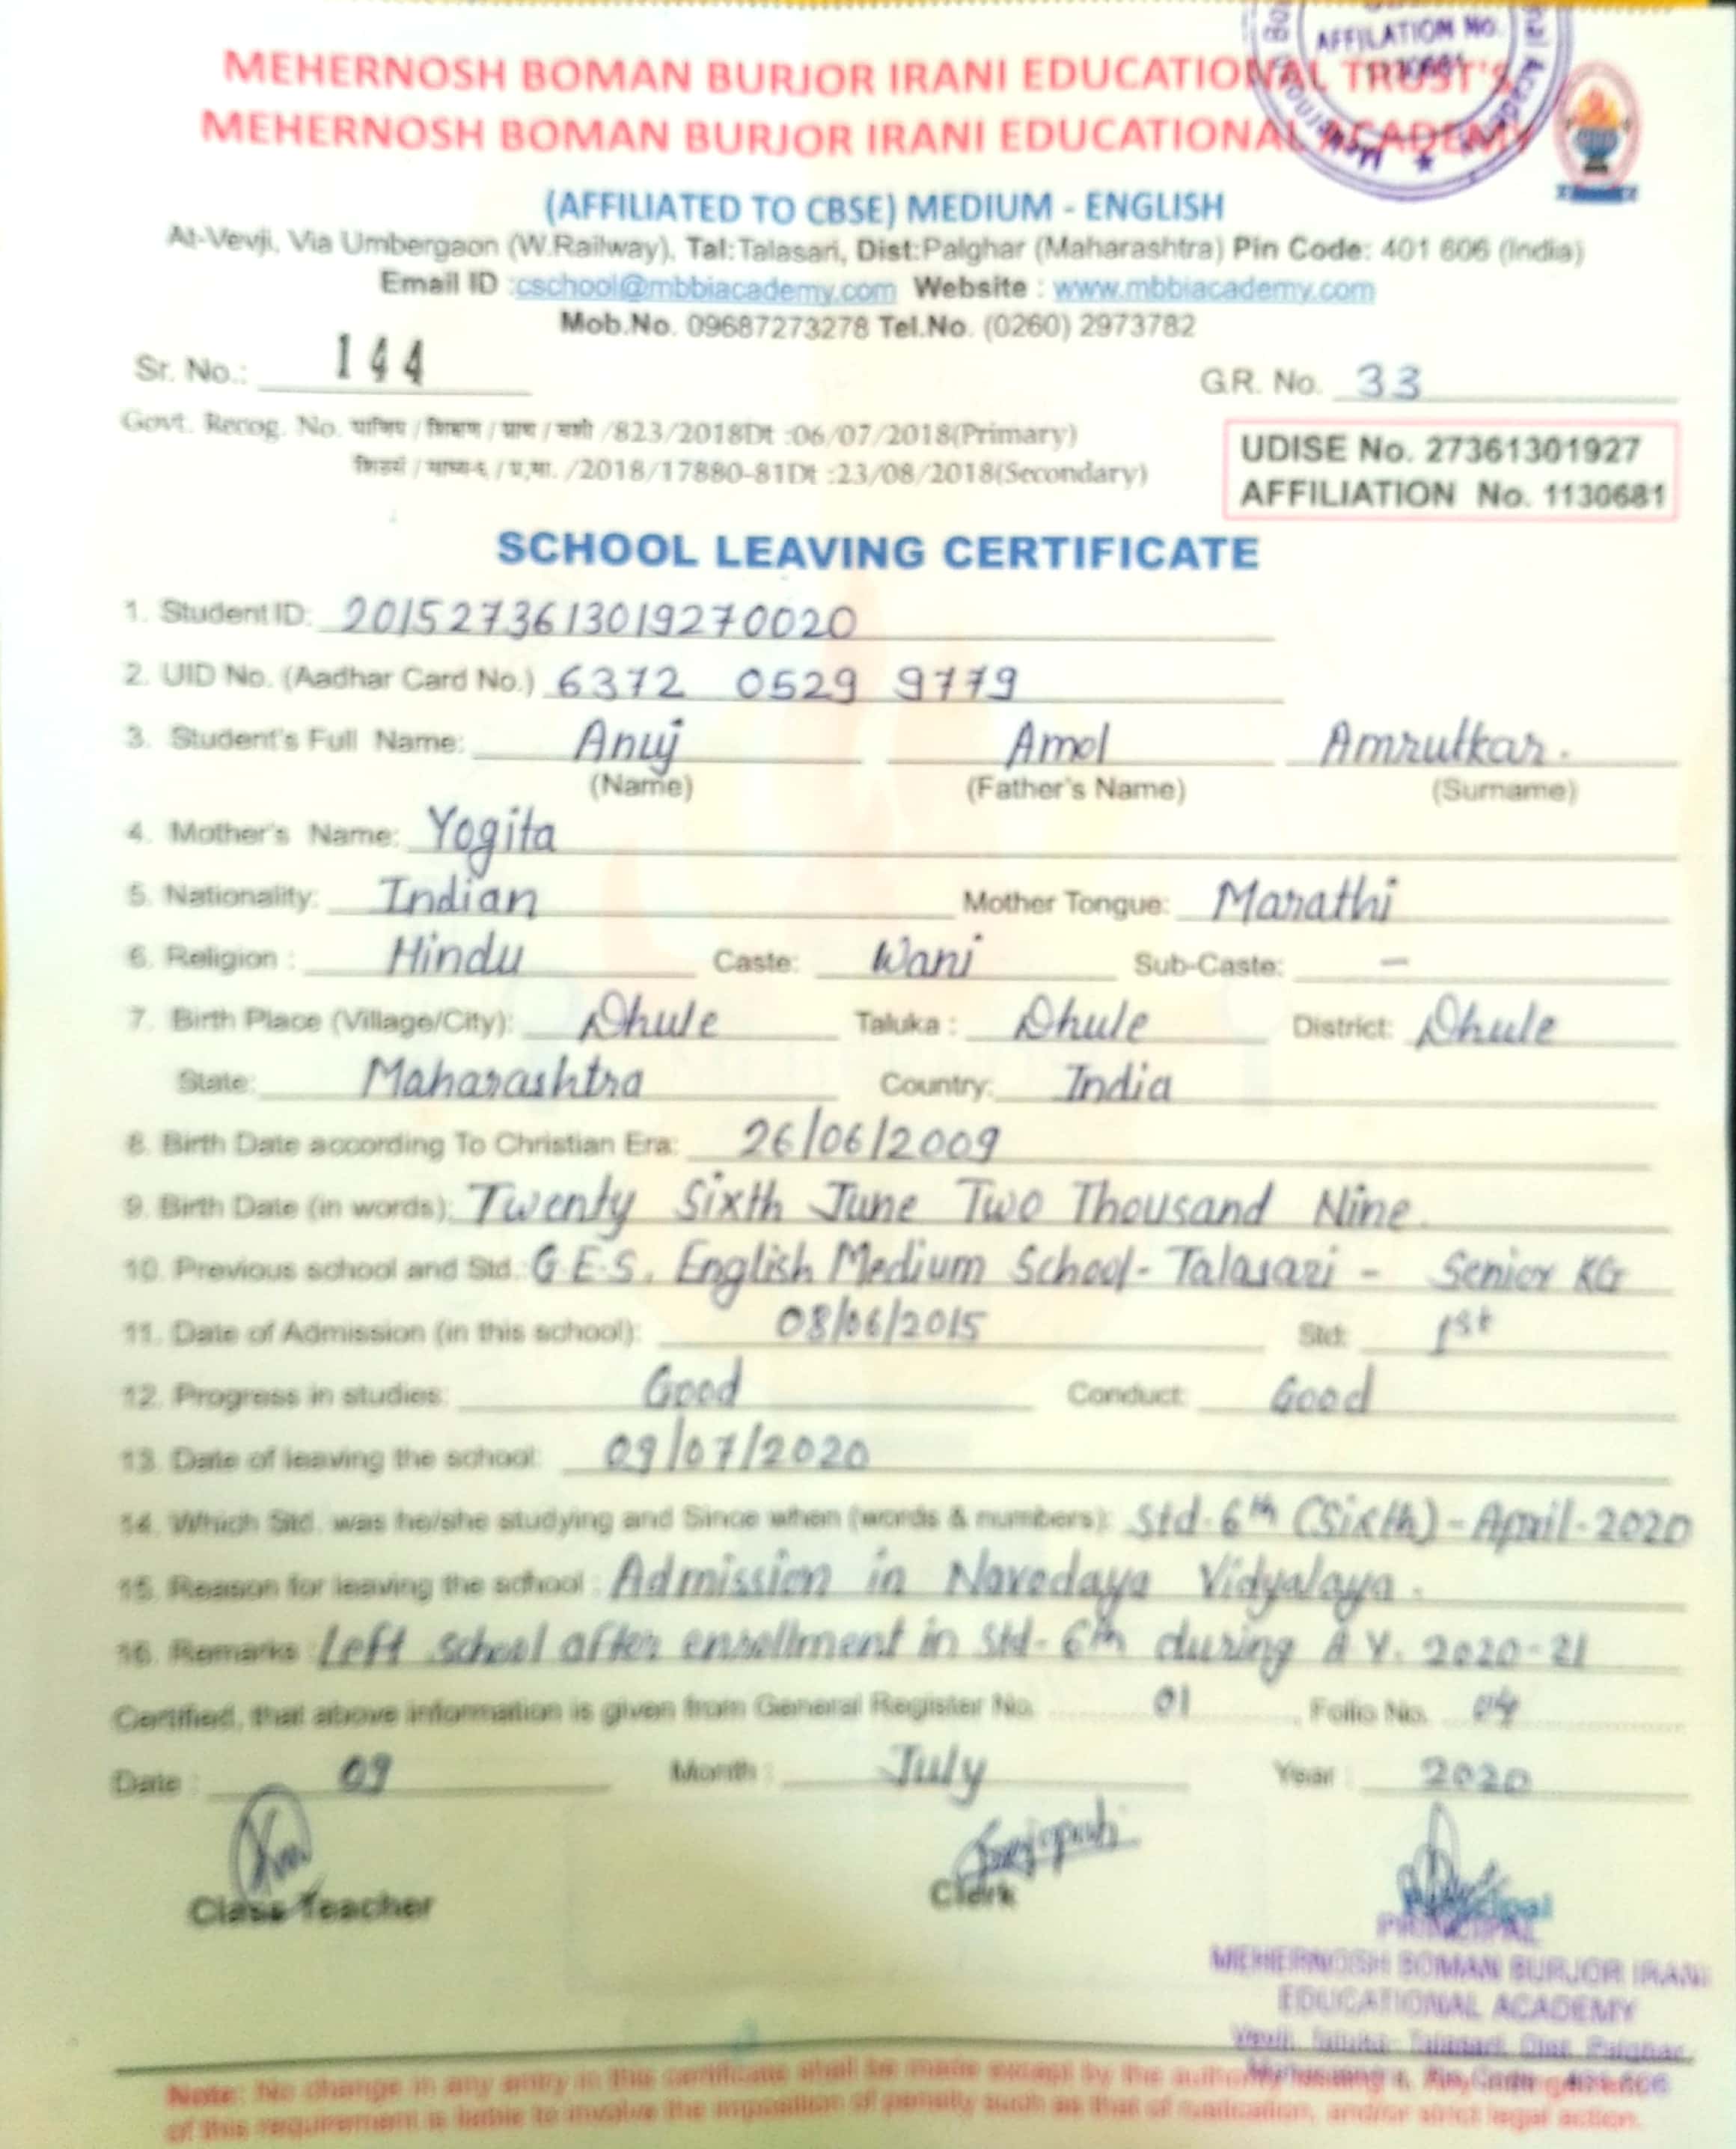 AFFILATION No.
MEHERNOSH BOMAN BURJOR IRANI EDUCATIONAL TRUST'S
MEHERNOSH BOMAN BURJOR IRANI EDUCATIONAL ACADEMY
(AFFILIATED TO CBSE) MEDIUM - ENGLISH
At-Vevji, Via Umbergaon (W.Railway), Tal:Talasari, Dist:Palghar (Maharashtra) Pin Code: 401 606 (India)
Email ID :cschool@mbbiacademy.com Website : www.mbbiacademy.com
Mob.No. 09687273278 Tel.No. (0260) 2973782
Sr. No.: 144 G.R. No. 33
Govt. Recog. No. /823/2018Dt :06/07/2018(Primary)
/2018/17880-81Dt :23/08/2018(Secondary)
UDISE No. 27361301927
AFFILIATION No. 1130681
SCHOOL LEAVING CERTIFICATE
1. Student ID: 2015273613019270020
2. UID No. (Aadhar Card No.) 6372 0529 9779
3. Student's Full Name: Anuj Amol Amrutkar.
(Name) (Father's Name) (Surname)
4. Mother's Name: Yogita
5. Nationality: Indian Mother Tongue: Marathi
6. Religion : Hindu Caste: Wani Sub-Caste: –
7. Birth Place (Village/City): Dhule Taluka : Dhule District: Dhule
State: Maharashtra Country: India
8. Birth Date according To Christian Era: 26/06/2009
9. Birth Date (in words): Twenty Sixth June Two Thousand Nine.
10. Previous school and Std.: G.E.S. English Medium School - Talasari - Senior KG
11. Date of Admission (in this school): 08/06/2015 Std: 1st
12. Progress in studies: Good Conduct: Good
13. Date of leaving the school: 09/07/2020
14. Which Std. was he/she studying and Since when (words & numbers): Std-6th (Sixth) - April-2020
15. Reason for leaving the school : Admission in Navodaya Vidyalaya.
16. Remarks Left school after enrollment in Std-6th during A.Y. 2020-21
Certified, that above information is given from General Register No. 01, Folio No. 04
Date : 09 Month : July Year : 2020
Class Teacher Clerk Principal
PRINCIPAL
MEHERNOSH BOMAN BURJOR IRANI
EDUCATIONAL ACADEMY
Vevji, Taluka- Talasari, Dist. Palghar,
Maharashtra, Pin Code - 401 606
Note: No change in any entry in this certificate shall be made except by the authority
of this requirement is liable to involve the imposition of penalty such as that of rustication, and/or strict legal action.